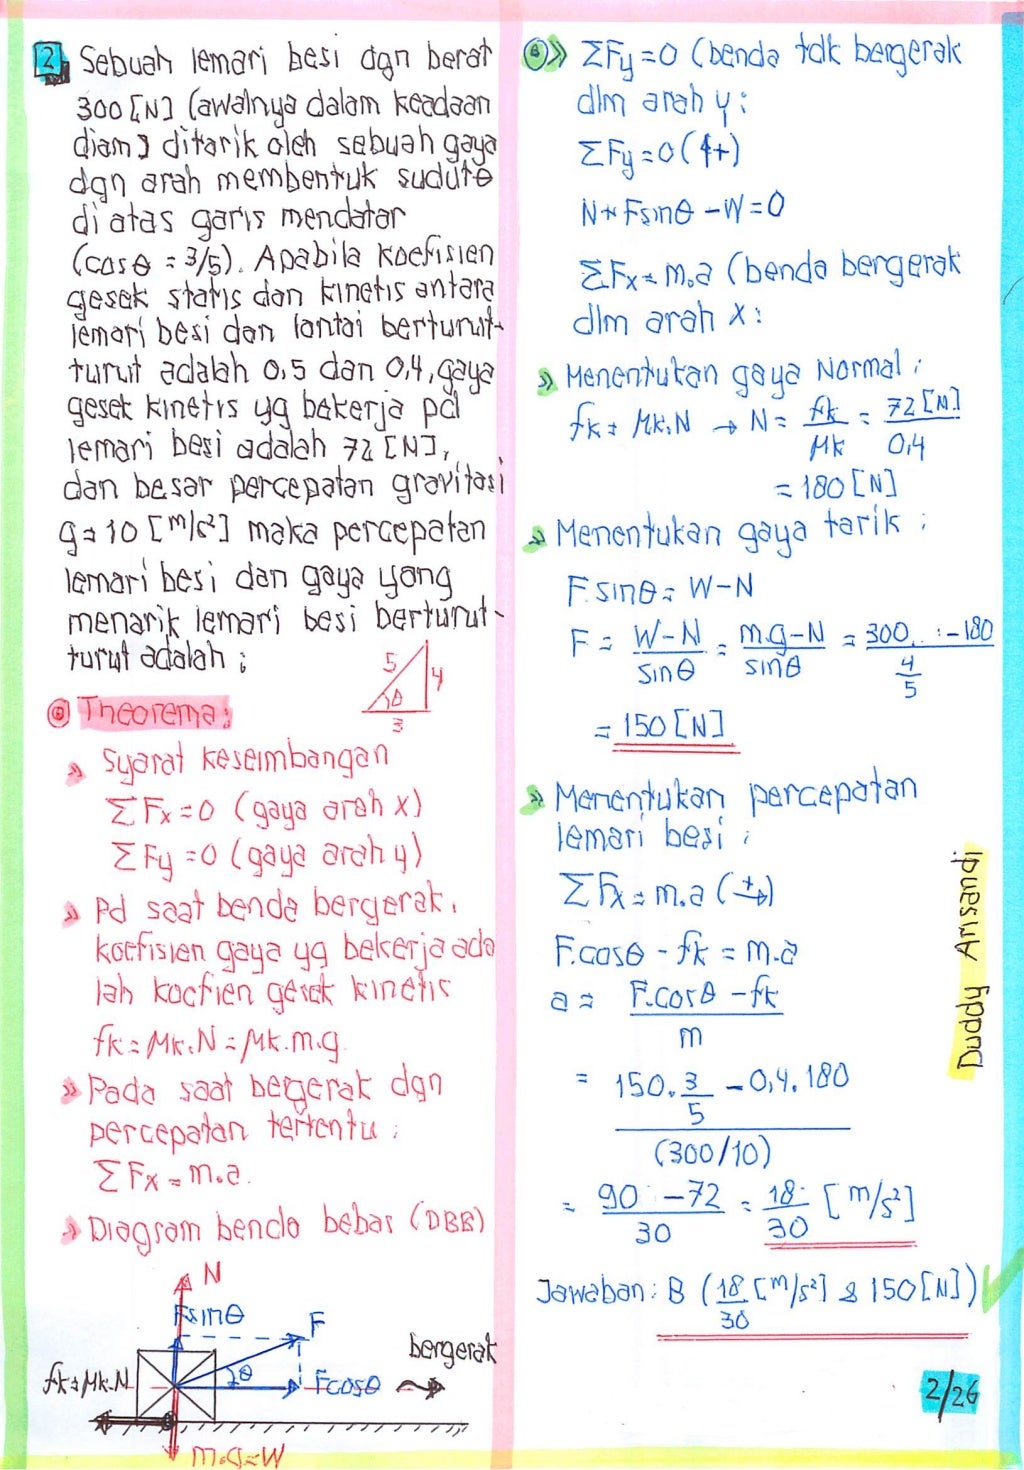 2 Sebuah lemari besi dgn berat
300 [N] (awalnya dalam keadaan
diam) ditarik oleh sebuah gaya
dgn arah membentuk sudut θ
di atas garis mendatar
(cos θ = 3/5). Apabila koefisien
gesek statis dan kinetis antara
lemari besi dan lantai berturut-
turut adalah 0,5 dan 0,4, gaya
gesek kinetis yg bekerja pd
lemari besi adalah 72 [N],
dan besar percepatan gravitasi
g = 10 [m/s²] maka percepatan
lemari besi dan gaya yang
menarik lemari besi berturut-
turut adalah :
5 4
θ
3
Theorema:
» Syarat keseimbangan
ΣFx = 0 (gaya arah x)
ΣFy = 0 (gaya arah y)
» Pd saat benda bergerak,
koefisien gaya yg bekerja ada
lah koefien gesek kinetis
fk = μk.N = μk.m.g
» Pada saat bergerak dgn
percepatan tertentu :
ΣFx = m.a.
» Diagram benda bebas (DBB)
N
F sin θ
F
bergerak
fk = μk.N
θ
F cos θ
m.g = W
» ΣFy = 0 (benda tdk bergerak
dlm arah y :
ΣFy = 0 (↑+)
N + F sin θ - W = 0
ΣFx = m.a (benda bergerak
dlm arah x :
» Menentukan gaya Normal :
fk = μk.N → N = fk/μk = 72 [N]/0,4
= 180 [N]
» Menentukan gaya tarik :
F sin θ = W - N
F = W-N/sin θ = m.g-N/sin θ = 300 - 180/(4/5)
= 150 [N]
» Menentukan percepatan
lemari besi :
ΣFx = m.a (+→)
F.cos θ - fk = m.a
a = F.cos θ - fk/m
= 150.3/5 - 0,4.180/(300/10)
= 90 - 72/30 = 18/30 [m/s²]
Jawaban : B (18/30 [m/s²] & 150 [N])
Duddy Arisandi
2/26